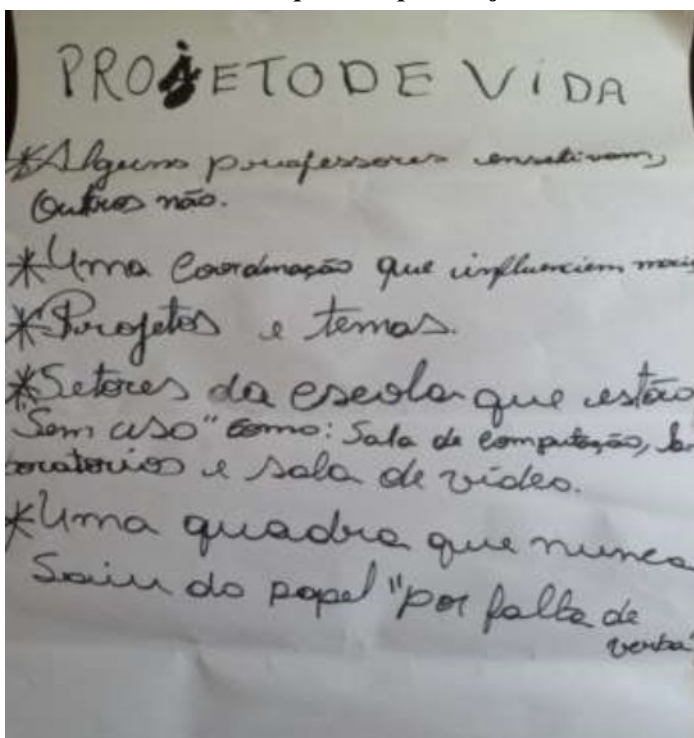 PROJETO DE VIDA
*Alguns professores insetivam,
Outros não.
*Uma Coordenação que influenciem mais
*Projetos e temas.
*Setores da escola que estão
"Sem uso" como: Sala de computação, la
boratorios e sala de vídeo.
*Uma quadra que nunca
Saiu do papel "por falta de
verba"